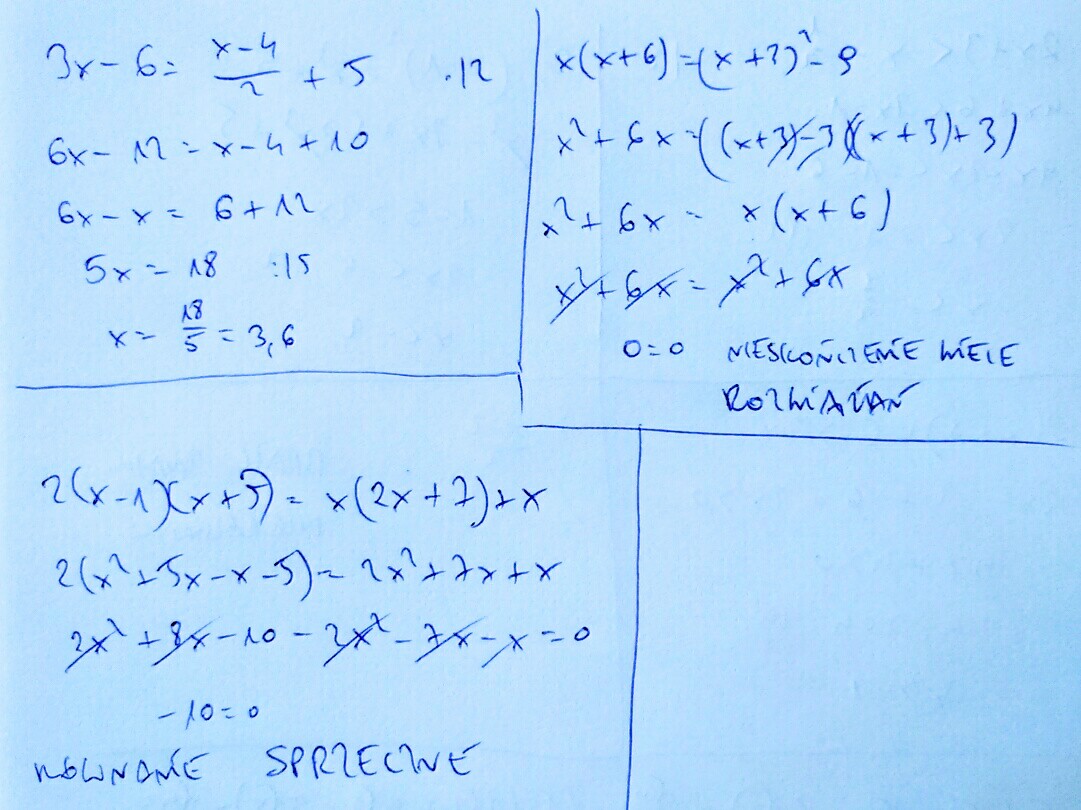 3x - 6 = \frac{x-4}{2} + 5 \quad | \cdot 2
6x - 12 = x - 4 + 10
6x - x = 6 + 12
5x = 18 \quad |:5
x = \frac{18}{5} = 3,6
x(x+6) = (x+3)² - 9
x² + 6x = ((x+3)-3)((x+3)+3)
x² + 6x = x(x+6)
x² + 6x = x² + 6x
0=0 NIESKOŃCZENIE WIELE
ROZWIĄZAŃ
2(x-1)(x+5) = x(2x+7)+x
2(x²+5x-x-5) = 2x²+7x+x
2x² + 8x - 10 - 2x² - 7x - x = 0
-10=0
RÓWNANIE SPRZECZNE